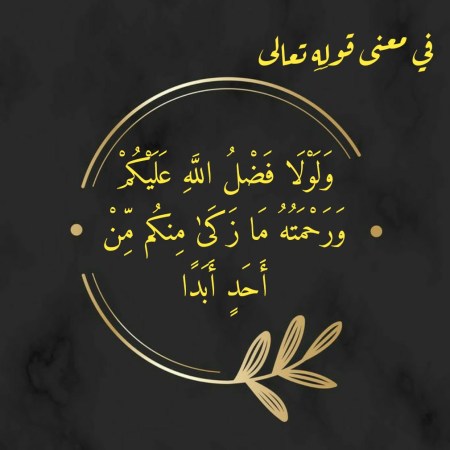 في معنى قوله تعالى
وَلَوْلَا فَضْلُ اللَّهِ عَلَيْكُمْ
وَرَحْمَتُهُ مَا زَكَىٰ مِنكُم مِّنْ
أَحَدٍ أَبَدًا